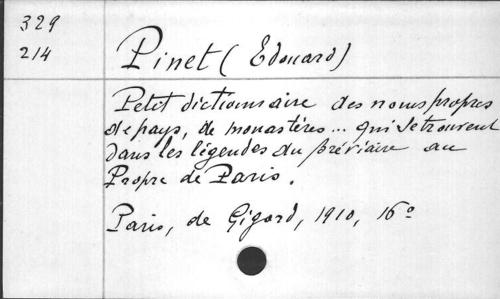 329
214
Pinet (Edouard)
Petit dictionnaire des noms propres
de pays, de monastères... qui se trouvent
dans les légendes du bréviaire au
Propre de Paris.
Paris, de Gigord, 1910, 16º